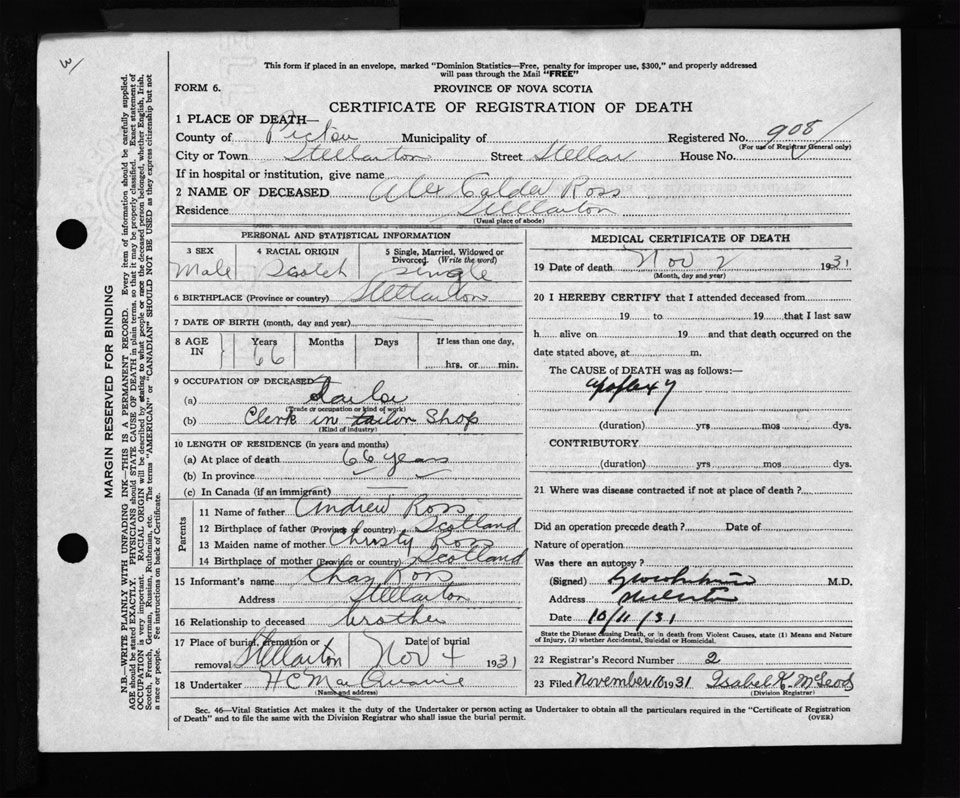 3/
This form if placed in an envelope, marked "Dominion Statistics—Free, penalty for improper use, $300," and properly addressed
will pass through the Mail "FREE"
FORM 6.
PROVINCE OF NOVA SCOTIA
CERTIFICATE OF REGISTRATION OF DEATH
1 PLACE OF DEATH—
County of Pictou Municipality of Registered No. 908
(For use of Registrar General only)
City or Town Stellarton Street Stellar House No.
If in hospital or institution, give name
2 NAME OF DECEASED Alex Calder Ross
Residence Stellarton
(Usual place of abode)
PERSONAL AND STATISTICAL INFORMATION
3 SEX 4 RACIAL ORIGIN 5 Single, Married, Widowed or Divorced. (Write the word)
Male Scotch Single
6 BIRTHPLACE (Province or country) Stellarton
7 DATE OF BIRTH (month, day and year) —
8 AGE IN Years Months Days If less than one day,
66 hrs. or min.
9 OCCUPATION OF DECEASED
(a) Tailor
(Trade or occupation or kind of work)
(b) Clerk in tailor Shop
(Kind of industry)
10 LENGTH OF RESIDENCE (in years and months)
(a) At place of death 66 years
(b) In province
(c) In Canada (if an immigrant)
Parents
11 Name of father Andrew Ross
12 Birthplace of father (Province or country) Scotland
13 Maiden name of mother Christy Ross
14 Birthplace of mother (Province or country) Scotland
15 Informant's name Chas Ross
Address Stellarton
16 Relationship to deceased brother
17 Place of burial, cremation or removal Stellarton Date of burial Nov 4 1931
18 Undertaker H C MacQuarrie
(Name and address)
MEDICAL CERTIFICATE OF DEATH
19 Date of death Nov 2 1931
(Month, day and year)
20 I HEREBY CERTIFY that I attended deceased from
19 to 19 that I last saw
h alive on 19 and that death occurred on
date stated above, at m.
The CAUSE of DEATH was as follows:—
apoplexy
(duration) yrs mos dys.
CONTRIBUTORY
(duration) yrs mos dys.
21 Where was disease contracted if not at place of death?
Did an operation precede death? Date of
Nature of operation
Was there an autopsy?
(Signed) M.D.
Address Stellarton
Date 10/11/31
State the Disease causing Death, or in death from Violent Causes, state (1) Means and Nature
of Injury, (2) whether Accidental, Suicidal or Homicidal.
22 Registrar's Record Number 2
23 Filed November 10 1931 Isabel K. McLeod
(Division Registrar)
Sec. 46—Vital Statistics Act makes it the duty of the Undertaker or person acting as Undertaker to obtain all the particulars required in the "Certificate of Registration
of Death" and to file the same with the Division Registrar who shall issue the burial permit.
(OVER)
MARGIN RESERVED FOR BINDING
N.B.—WRITE PLAINLY WITH UNFADING INK—THIS IS A PERMANENT RECORD. Every item of information should be carefully supplied.
AGE should be stated EXACTLY. PHYSICIANS should STATE CAUSE OF DEATH in plain terms, so that it may be properly classified. Exact statement of
OCCUPATION is very important. RACIAL ORIGIN will be described by stating to what people or race the deceased person belonged, whether English, Irish,
Scotch, French, German, Russian, Ruthenian, etc. The terms "AMERICAN" or "CANADIAN" SHOULD NOT BE USED as they express citizenship but not
a race or people. Fee instructions on back of Certificate.